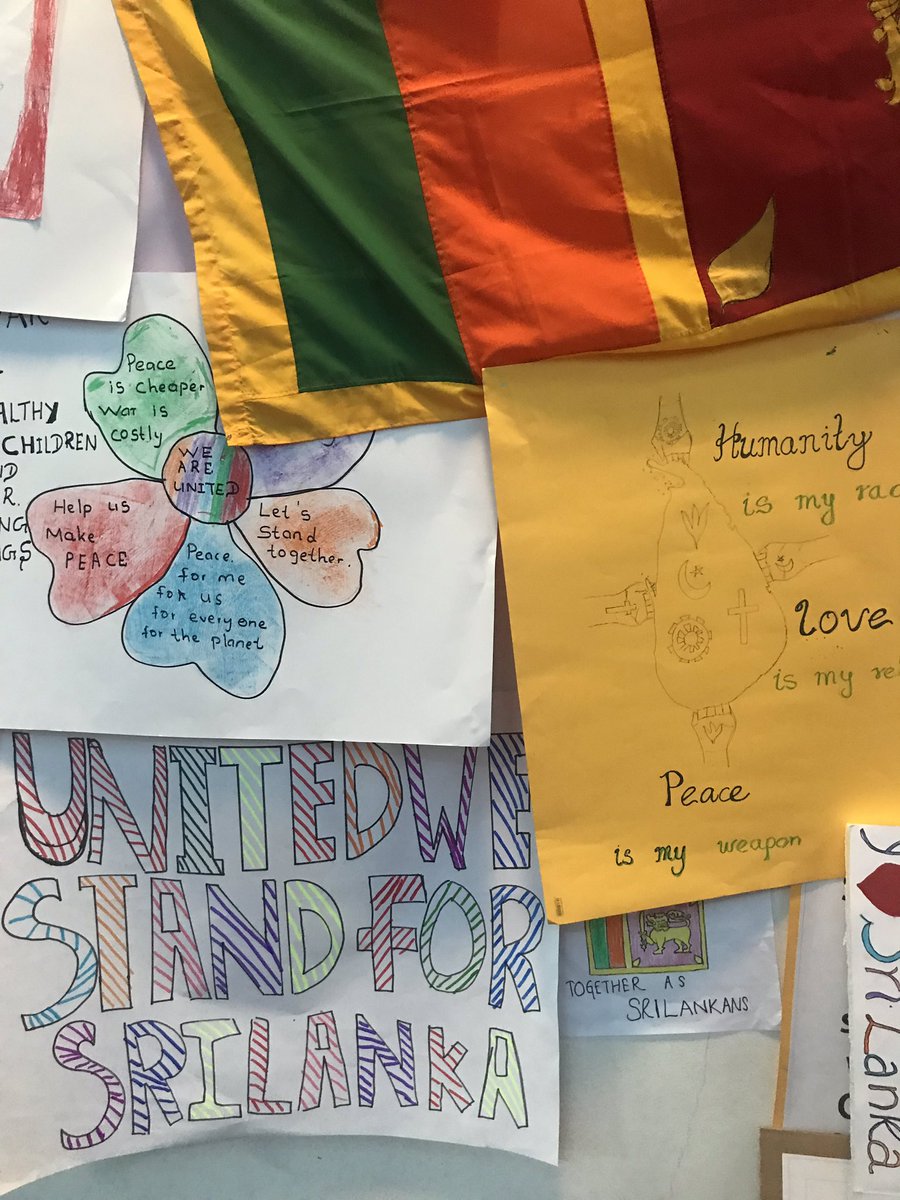 ALTHY
CHILDREN
Peace
is cheaper
War is
costly
WE
ARE
UNITED
Help us
Make
PEACE
Let's
Stand
together.
Peace.
for me
for us
for everyone
for the planet
Humanity
is my rac
Love
is my rel
Peace
is my weapon
UNITED WE
STAND FOR
SRILANKA
TOGETHER AS
SRILANKANS
y
Sri Lanka